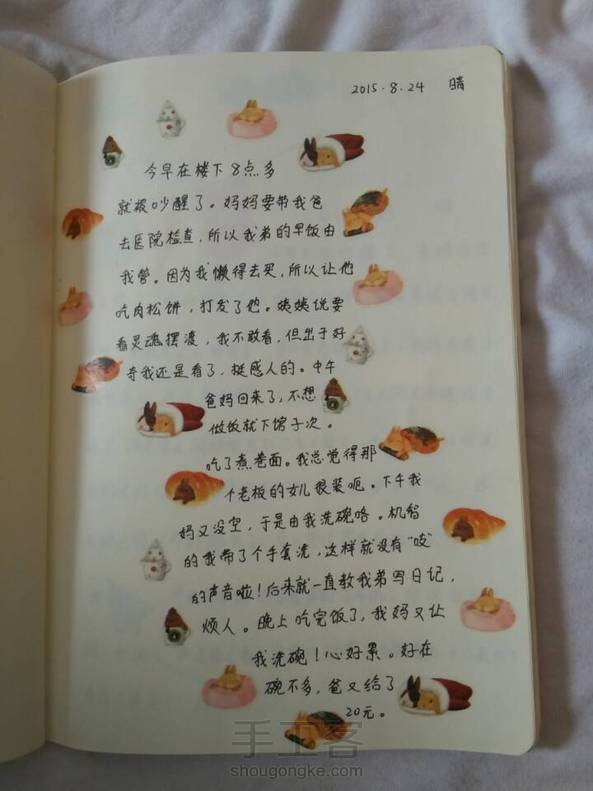 2015.8.24 晴
今早在楼下8点多
就被吵醒了。妈妈要带我爸
去医院检查,所以我弟的早饭由
我管。因为我懒得去买,所以让他
吃肉松饼,打发了他。姨姨说要
看灵魂摆渡,我不敢看,但出于好
奇我还是看了,挺感人的。中午
爸妈回来了,不想
做饭就下馆子次。
吃了煮卷面。我总觉得那
个老板的女儿很装呃。下午我
妈又没空,于是由我洗碗咯。机智
的我带了个手套洗,这样就没有“吱”
的声音啦!后来就一直教我弟写日记,
烦人。晚上吃完饭了,我妈又让
我洗碗!心好累。好在
碗不多,爸又给了
20元。
手工客
shougongke.com